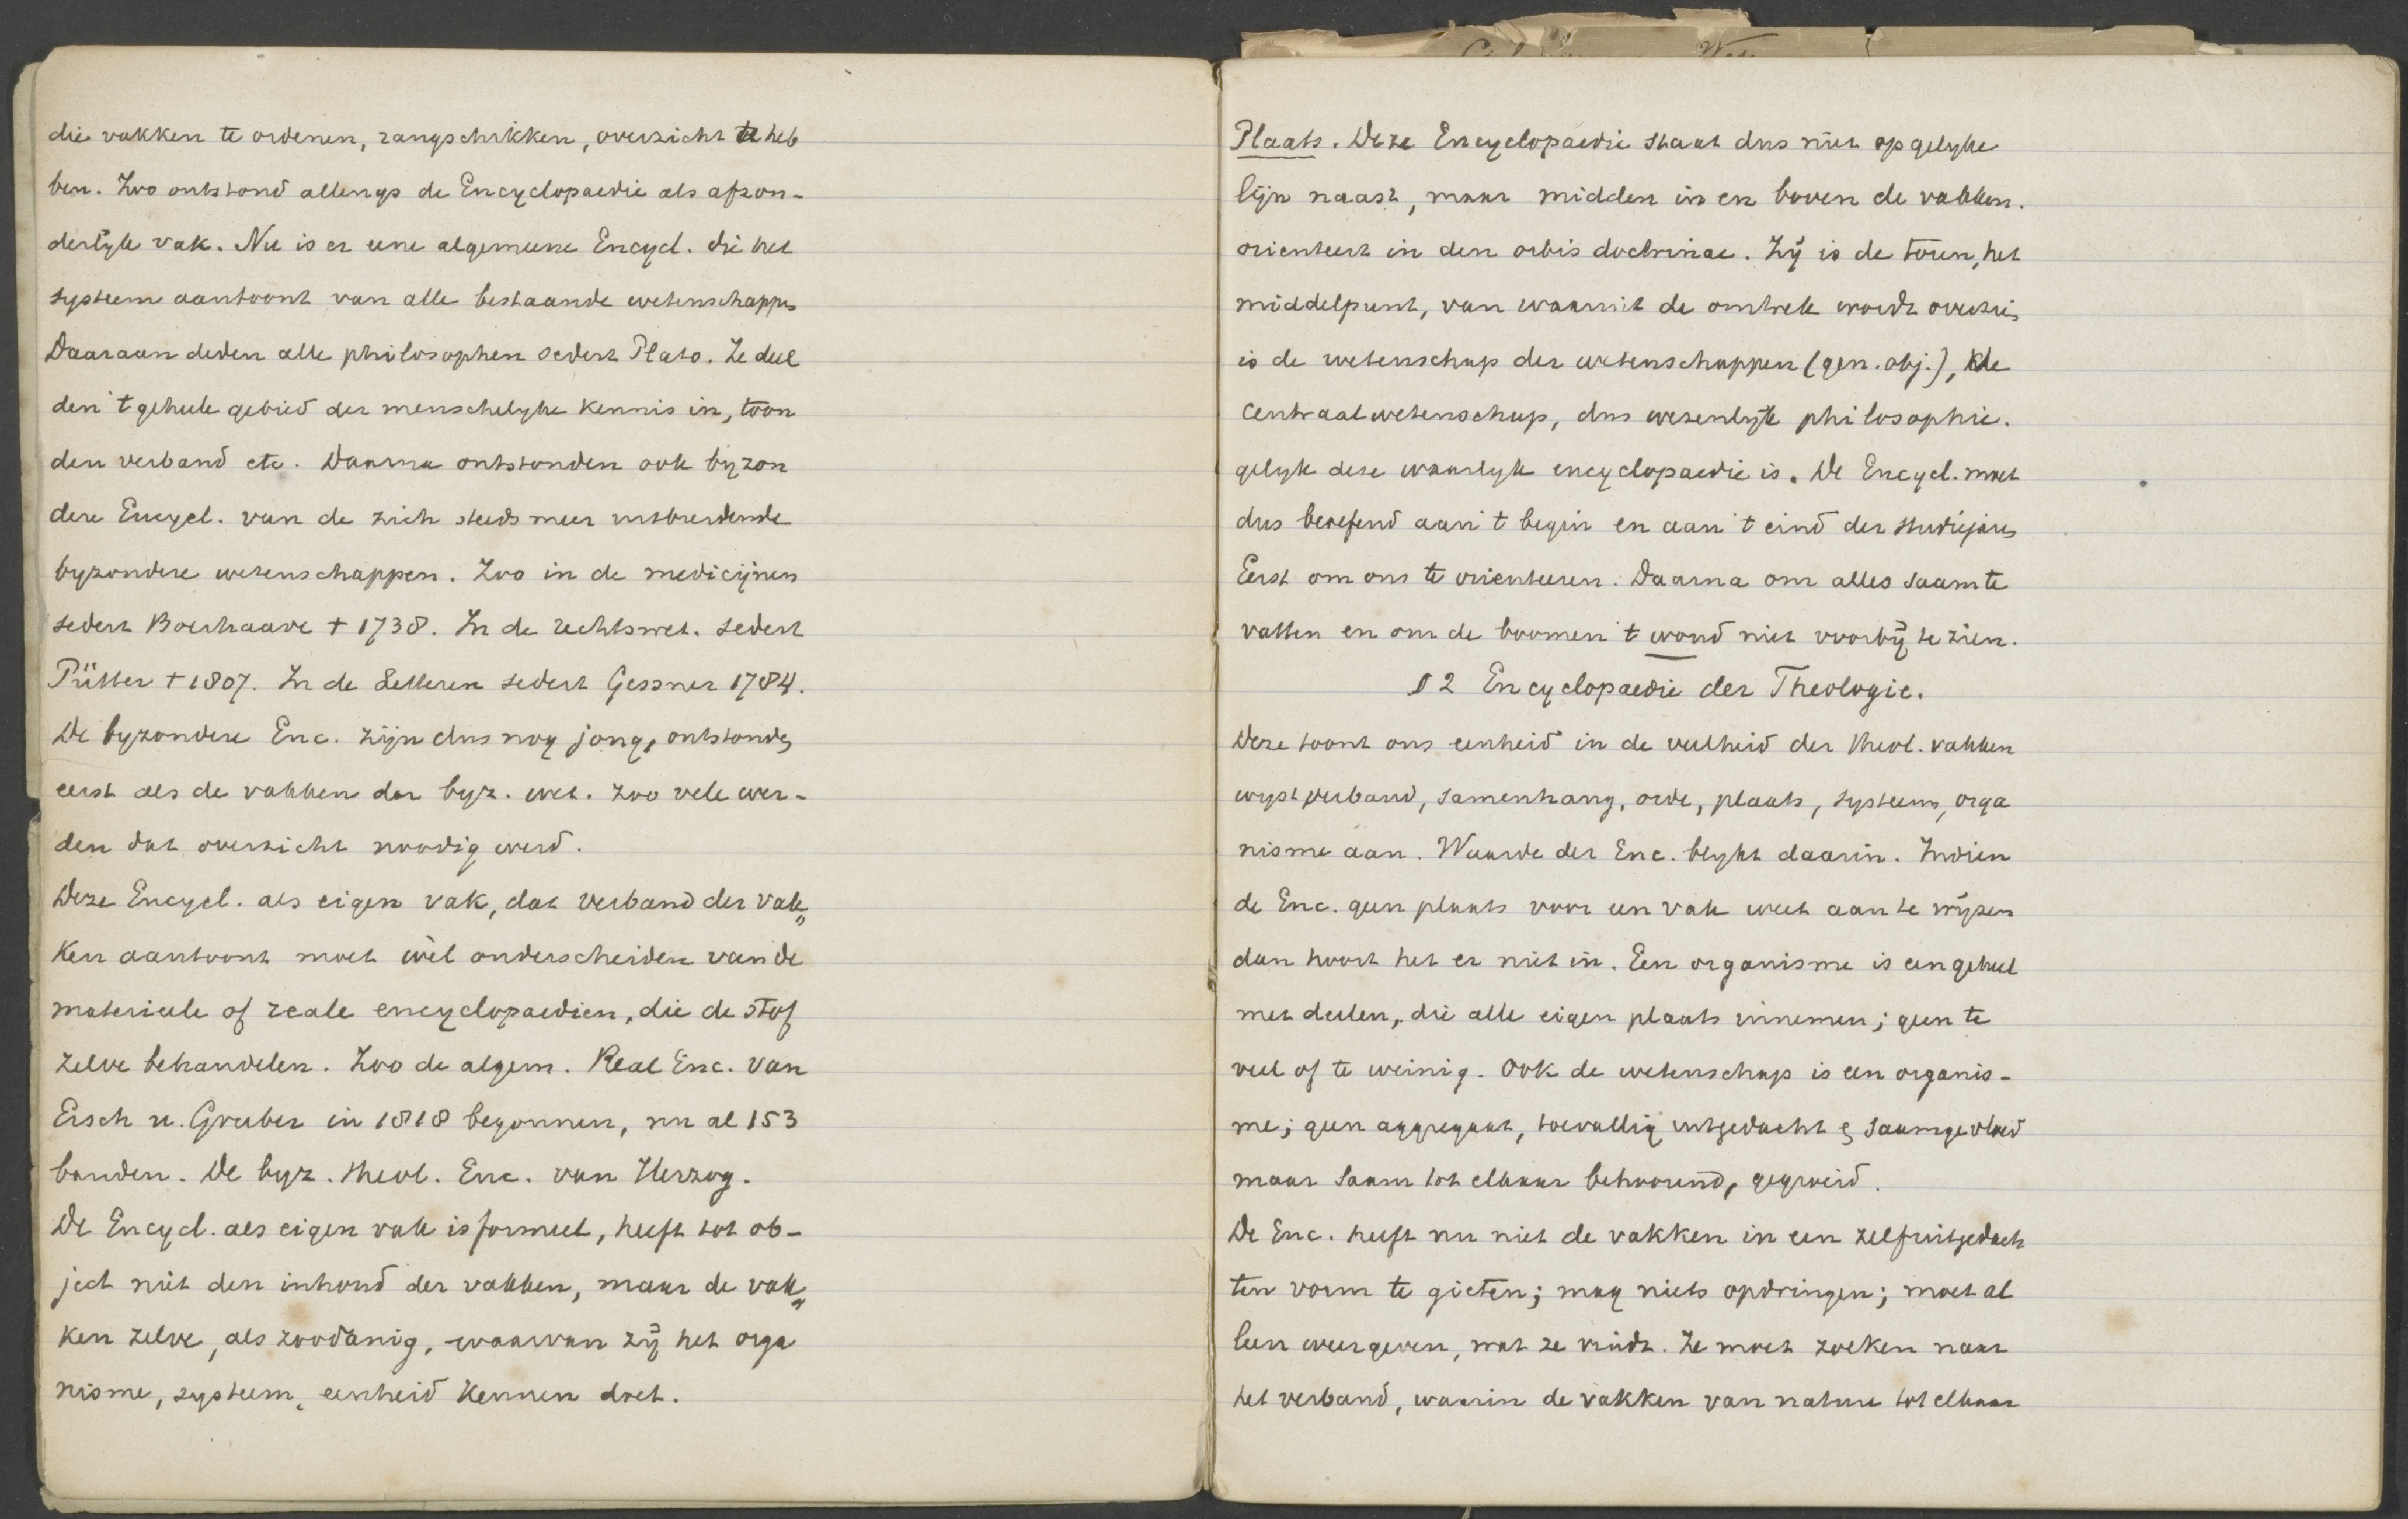 die vakken te ordenen, rangschikken, overzicht te heb
ben. Zoo ontstond allengs de Encyclopaedie als afzon-
derlijk vak. Nu is er eene algemeene Encycl. die het
systeem aantoont van alle bestaande wetenschappen
Daaraan deden alle philosophen sedert Plato. Ze deel
den 't geheele gebied der menschelyke kennis in, toon
den verband etc. Daarna ontstonden ook byzon
dere Encycl. van de zich steeds meer uitbreidende
byzondere wetenschappen. Zoo in de medicijnen
sedert Boerhaave † 1738. In de rechtswet. sedert
Pütter † 1807. In de Letteren sedert Gessner 1784.
De byzondere Enc. zijn dus nog jong, ontstonden
eerst als de vakken der byz. wet. zoo vele wer-
den dat overzicht noodig werd.
Deze Encycl. als eigen vak, dat verband der vak„
ken aantoont moet wèl onderscheiden van de
materieele of reale encyclopaedien, die de stof
zelve behandelen. Zoo de algem. Real Enc. van
Ersch u. Gruber in 1818 begonnen, nu al 153
banden. De byz. theol. Enc. van Herzog.
De Encycl. als eigen vak is formeel, heeft tot ob-
ject niet den inhoud der vakken, maar de vak„
ken zelve, als zoodanig, waarvan zij het orga
nisme, systeem, eenheid kennen doet.
Plaats. Deze Encyclopaedie staat dus niet op gelyke
lijn naast, maar midden in en boven de vakken.
orienteert in den orbis doctrinae. Zij is de toren, het
middelpunt, van waaruit de omtrek wordt overzien
is de wetenschap der wetenschappen (gen. obj.), de
centraalwetenschap, dus wezenlyk philosophie.
gelyk deze waarlyk encyclopaedie is. De Encycl. moet
dus beoefend aan 't begin en aan 't eind der studiejaren
Eerst om ons te orienteeren. Daarna om alles saam te
vatten en om de boomen 't woud niet voorbij te zien.
§ 2 Encyclopaedie der Theologie.
Deze toont ons eenheid in de veelheid der theol. vakken
wyst verband, samenhang, orde, plaats, systeem, orga
nisme aan. Waarde der Enc. blykt daarin. Indien
de Enc. geen plaats voor een vak weet aan te wijzen
dan hoort het er niet in. Een organisme is een geheel
met deelen, die alle eigen plaats innemen; geen te
veel of te weinig. Ook de wetenschap is een organis-
me; geen aggregaat, toevallig uitgedacht en saamgevloeid
maar saam tot elkaar behoorend, gegroeid.
De Enc. heeft nu niet de vakken in een zelfuitgedach
ten vorm te gieten; mag niets opdringen; moet al
leen weergeven, wat ze vindt. Ze moet zoeken naar
het verband, waarin de vakken van nature tot elkaar